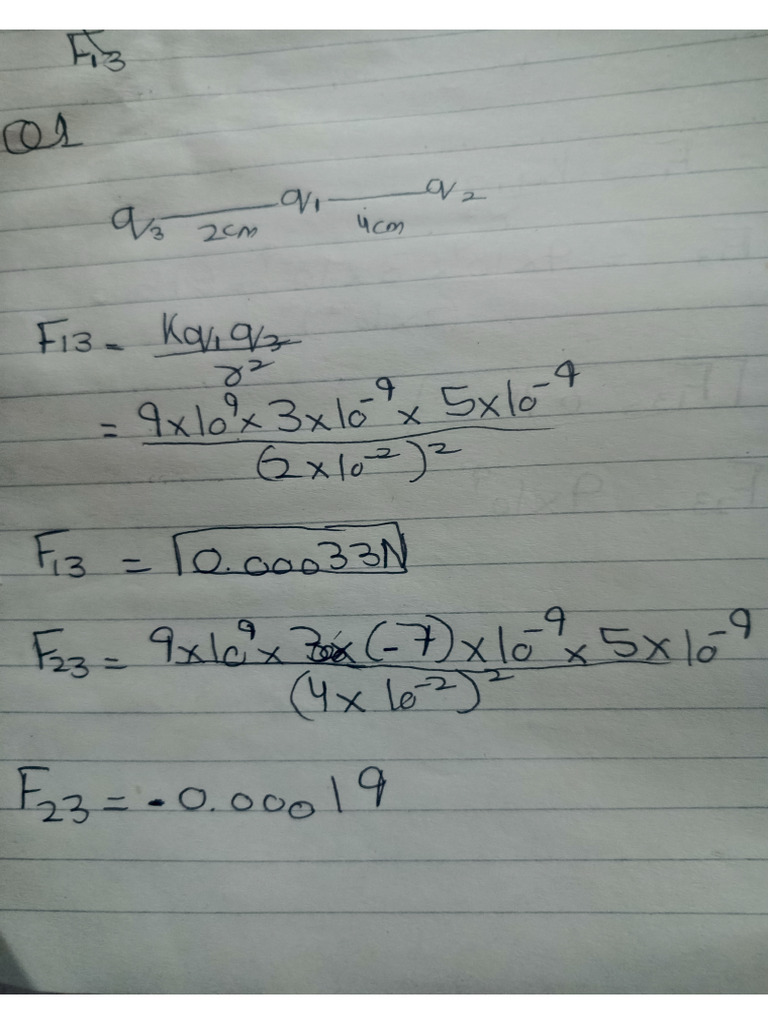 F₁₃
Q1
q₃ —— q₁ —— q₂
2cm 4cm
F₁₃ = Kq₁q₃ / r²
= 9×10⁹×3×10⁻⁹×5×10⁻⁹ / (2×10⁻²)²
F₁₃ = 0.00033N
F₂₃ = 9×10⁹×(-7)×10⁻⁹×5×10⁻⁹ / (4×10⁻²)²
F₂₃ = -0.00019